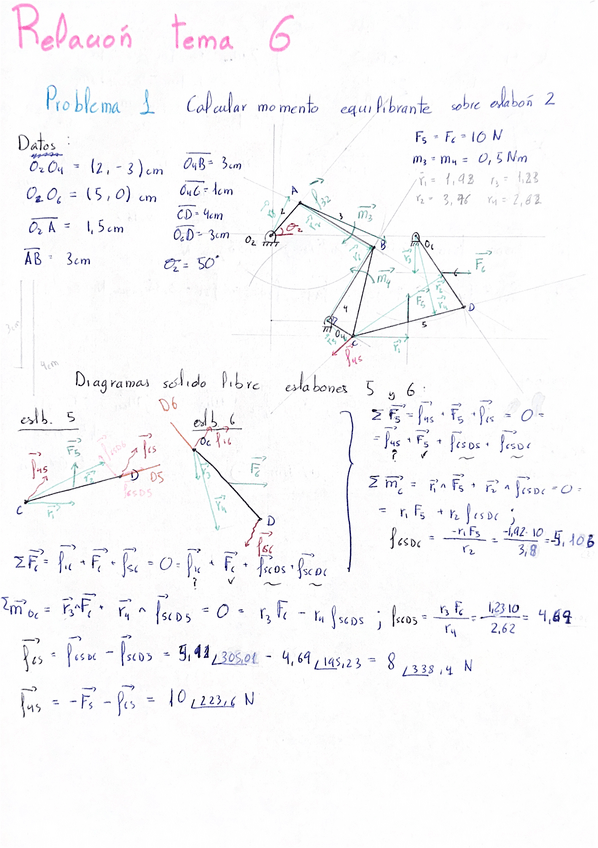 Relación tema 6
Problema 1 Calcular momento equilibrante sobre eslabón 2
Datos:
O₂O₄ = (2, -3) cm
O₂O₆ = (5, 0) cm
O₂A = 1,5cm
AB = 3cm
O₄B = 3cm
O₄C = 1cm
CD = 4cm
O₆D = 3cm
θ₂ = 50°
F₅ = F₆ = 10 N
m₃ = m₄ = 0,5 Nm
r₁ = 1,92 r₃ = 1,23
r₂ = 3,76 r₄ = 2,62
A
B
C
D
O₂
O₄
O₆
2
3
4
5
θ₂
m₃
m₄
F₅
F₆
f₃₂
f₄₅
3cm
4cm
Diagramas sólido libre eslabones 5 y 6:
eslb. 5
eslb. 6
D6
D5
C
D
O₆
D
ΣF₅ = f₄₅ + F₅ + f₆₅ = 0 =
= f₄₅ + F₅ + f₆₅D₅ + f₆₅D₆
Σm_C = r₁ ∧ F₅ + r₂ ∧ f₆₅D₆ = 0 =
= r₁ F₅ + r₂ f₆₅D₆ ;
f₆₅D₆ = -r₁F₅ / r₂ = -1,92·10 / 3,8 = -5,108
ΣF₆ = f₁₆ + F₆ + f₅₆ = 0 = f₁₆ + F₆ + f₅₆D₅ + f₅₆D₆
Σm_O₆ = r₃ ∧ F₆ + r₄ ∧ f₅₆D₅ = 0 = r₃ F₆ - r₄ f₅₆D₅ ; f₅₆D₅ = r₃ F₆ / r₄ = 1,23·10 / 2,62 = 4,69
f₆₅ = f₆₅D₆ - f₅₆D₅ = 5,11∠305,01 - 4,69∠195,23 = 8∠338,4 N
f₄₅ = -F₅ - f₆₅ = 10∠223,6 N